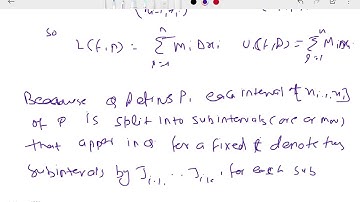 (xi-1, xi)
So
L(f,p) = n∑i=1 mi Δxi U(f,P) = n∑i=1 Mi Δxi
Because Q refins P, each interval [xi-1, xi]
of P is split into subintervals (one or mor)
that apper in Q for a fixed i denote the
subintervals by Ji,1, ... Ji,k, for each sub